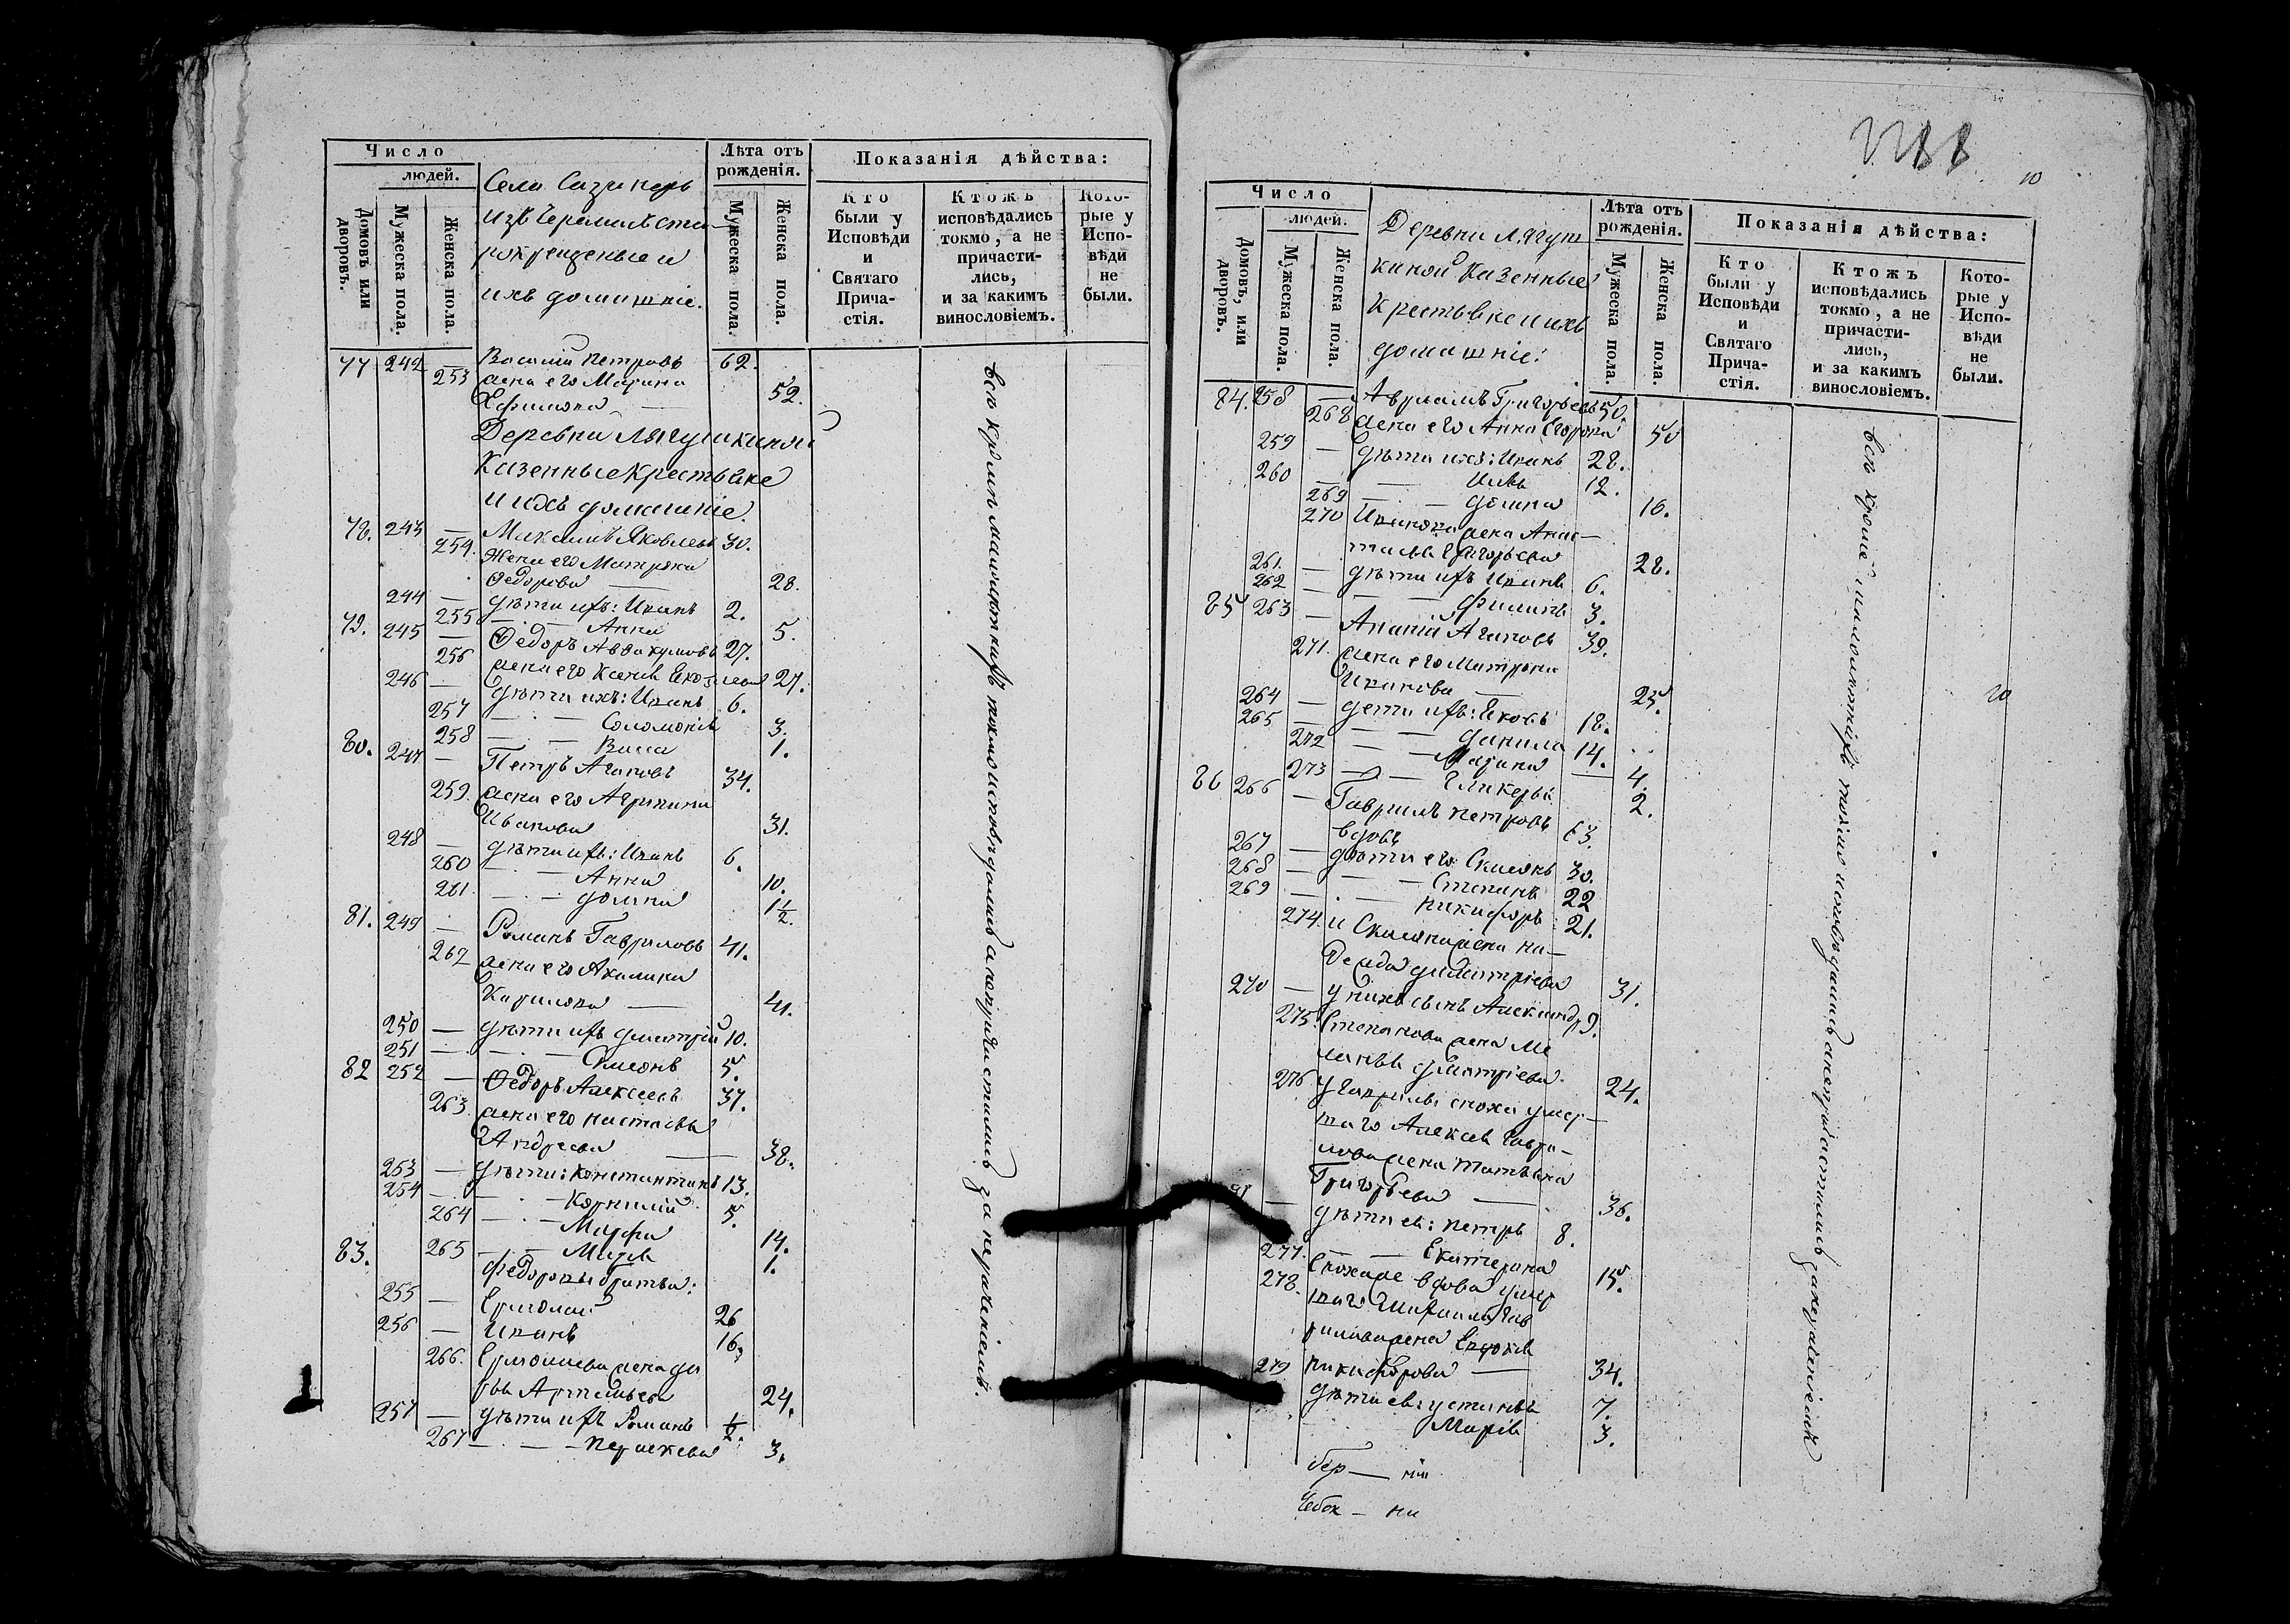 Число
людей.
Домовъ или дворовъ.
Мужеска пола.
Женска пола.
Лѣта отъ рожденія.
Мужеска пола.
Женска пола.
Показанія дѣйства:
Кто были у Исповѣди и Святаго Прича-стія.
Ктожъ исповѣдались токмо, а не причасти-лись, и за какимъ винословіемъ.
Кото-рые у Испо-вѣди не были.
Села
изъ
рокрещеные и
ихъ домашніе.
77 242 — Василій Петровъ 62.
253 жена его Марина
52.
Деревни Лягушкиной
Казенные Крестьяне
и ихъ домашніе.
78. 243 — Яковлевъ 30.
254. Жена его Матрона
Федорова — 28.
244 — дѣти ихъ: Иванъ 2.
255 — Анна 5.
79. 245 — Федоръ Аввакумовъ 27.
256 жена его Ксенія 27.
246 — дѣти ихъ: Иванъ 6.
257 — Соломонія 3.
258 — Васса 1.
80. 247 — Петръ Агаповъ 34.
259. жена его Агрипина
Иванова 31.
248 — дѣти ихъ: Иванъ 6.
260 — Анна 10.
261 — Домна 1 1/2.
81. 249 — Романъ Гавриловъ 41.
262 жена его Акилина
41.
250 — дѣти ихъ Дмитрій 10.
251 — Симеонъ 5.
82 252 — Федоръ Алексеевъ 37.
263 жена его Настасья
Андреева — 38.
253 — дѣти: Константинъ 13.
254 — Корнилій 5.
264 — Марфа 14.
83. 265 — Марья 1.
Федоровы братья:
255 — 26
256 — Иванъ 16.
266. жена
24.
257 — дѣти ихъ Романъ 1/2.
267 — Параскева 3.
всѣ кромѣ малолѣтнихъ токмо исповѣдались а непричастились за нераченіемъ.
10
Число
людей.
Домовъ, или дворовъ.
Мужеска пола.
Женска пола.
Деревни Лягуш
киной Казенные
Крестьяне и ихъ
домашніе:
Лѣта отъ рожденія.
Мужеска пола.
Женска пола.
Показанія дѣйства:
Кто были у Исповѣди и Святаго Прича-стія.
Ктожъ исповѣдались токмо, а не причасти-лись, и за какимъ винословіемъ.
Кото-рые у Испо-вѣди не были.
84. 258 — Григорьевъ 50.
268 жена его Анна Егорова 50
259 — дѣти ихъ: Иванъ 28.
260 — 12.
269 — Домна 16.
270 Иванова жена Анас-
тасья Григорьева 28.
261. — дѣти ихъ Иванъ 6.
262 — Филипъ 3.
85 263 — Ананій Агаповъ 39.
271. жена его Матрона
Иванова — 25.
264 — дети ихъ: Яковъ 18.
265 — Данила 14.
272 — Марина 4.
273 — Гликерья 2.
86 266 — Гаврилъ Петровъ 63.
вдовъ
267 — дѣти его: Симеонъ 30.
268 — Степанъ 22
269 — Никифоръ 21.
274. и Симеона жена На-
Дмитріева 31.
270 — у нихъ сынъ Александр 9.
275. Степанова жена Ме
ланья Дмитріева 24.
276 у Гаврилы сноха умер-
шаго Алексея Гаври-
лова жена Татьяна
Григорьева — 36.
— дѣти ея: Петръ 8.
277. — Екатерина 15.
278. вдова умер
шаго Гав
рилова жена
279 Никифорова — 34.
дѣти ея: Устинья 7.
Марія 3.
всѣ кромѣ малолѣтнихъ токмо исповѣдались а непричастились за нераченіемъ